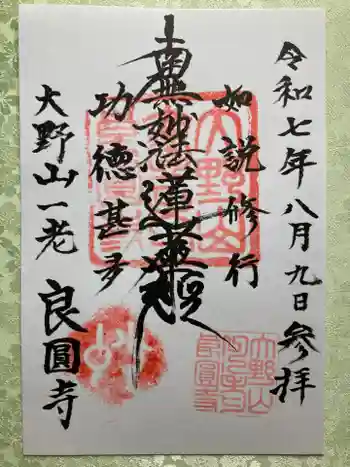 令和七年八月九日参拝
如説修行
南無妙法蓮華経
功徳甚多
大野山一老
良圓寺
大野山
良圓寺